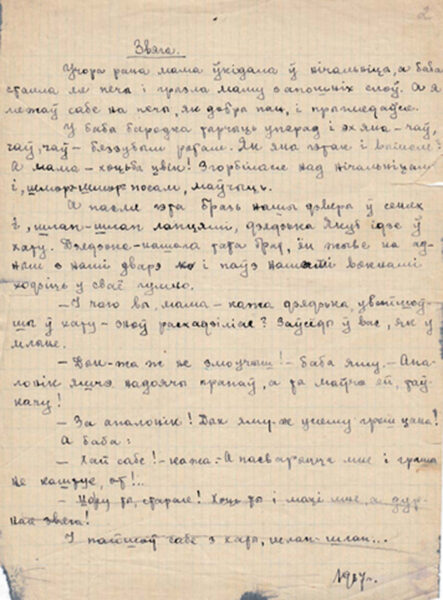 2
Звяга.
Учора рана мама ўкідала ў ничальніца, а баба
стаяла ля печы і грызла маму з апошніх слоў. А я
лежаў сабе на печы, як добры пан, і
У баба бародка тарчыць уперад і яна – чаў,
чаў, чаў – бяззубым ротам. Як яна гэтак і
А мама – хоць бы цвік! Згорбілася над нічальніцам
і, шморг-шморг носам, маўчыць.
А пасля гэта бразь нашы дзверы ў сенех
і, шлап-шлап лапцямі, дзядзька Якуб ідзе ў
хату. Дзядзька – нашага тата брат, ён жыве на ад-
ным з намі дварэ і паўз нашымі вокнамі
ходзіць у сваё гумно.
– І чаго вы, мама – кажа дзядзька, увайшоў-
шы ў хату – зноў раскадзіліся? Заўсёды ў вас, як у
млыне.
– Дак-жа ж не змоўчыш! – баба яму. – Апа-
лонік яшчэ надоячы прапаў, а та маўчы ёй, таў-
качу!
– За апалонік! Дак яму-ж усяму грош цана!
А баба:
– Хай сабе! – кажа. – А пасварыцца мне і граша
не каштуе, от!..
– Цьфу ты, старая! Хоць ты і маці мне, а дур-
ная звяга!
І пайшоў сабе з хаты, шлап-шлап...